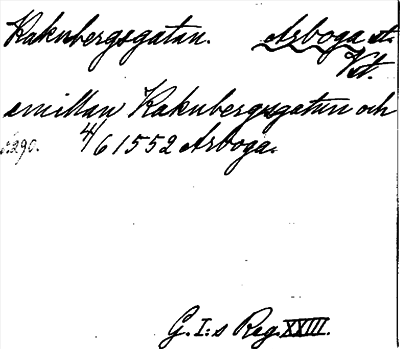 Kakubergsgatan. Arboga st.
Vst.
emillan Kakubergsgatan och
s.290. 4/6 1552 Arboga.
G. I:s Reg. XXIII.